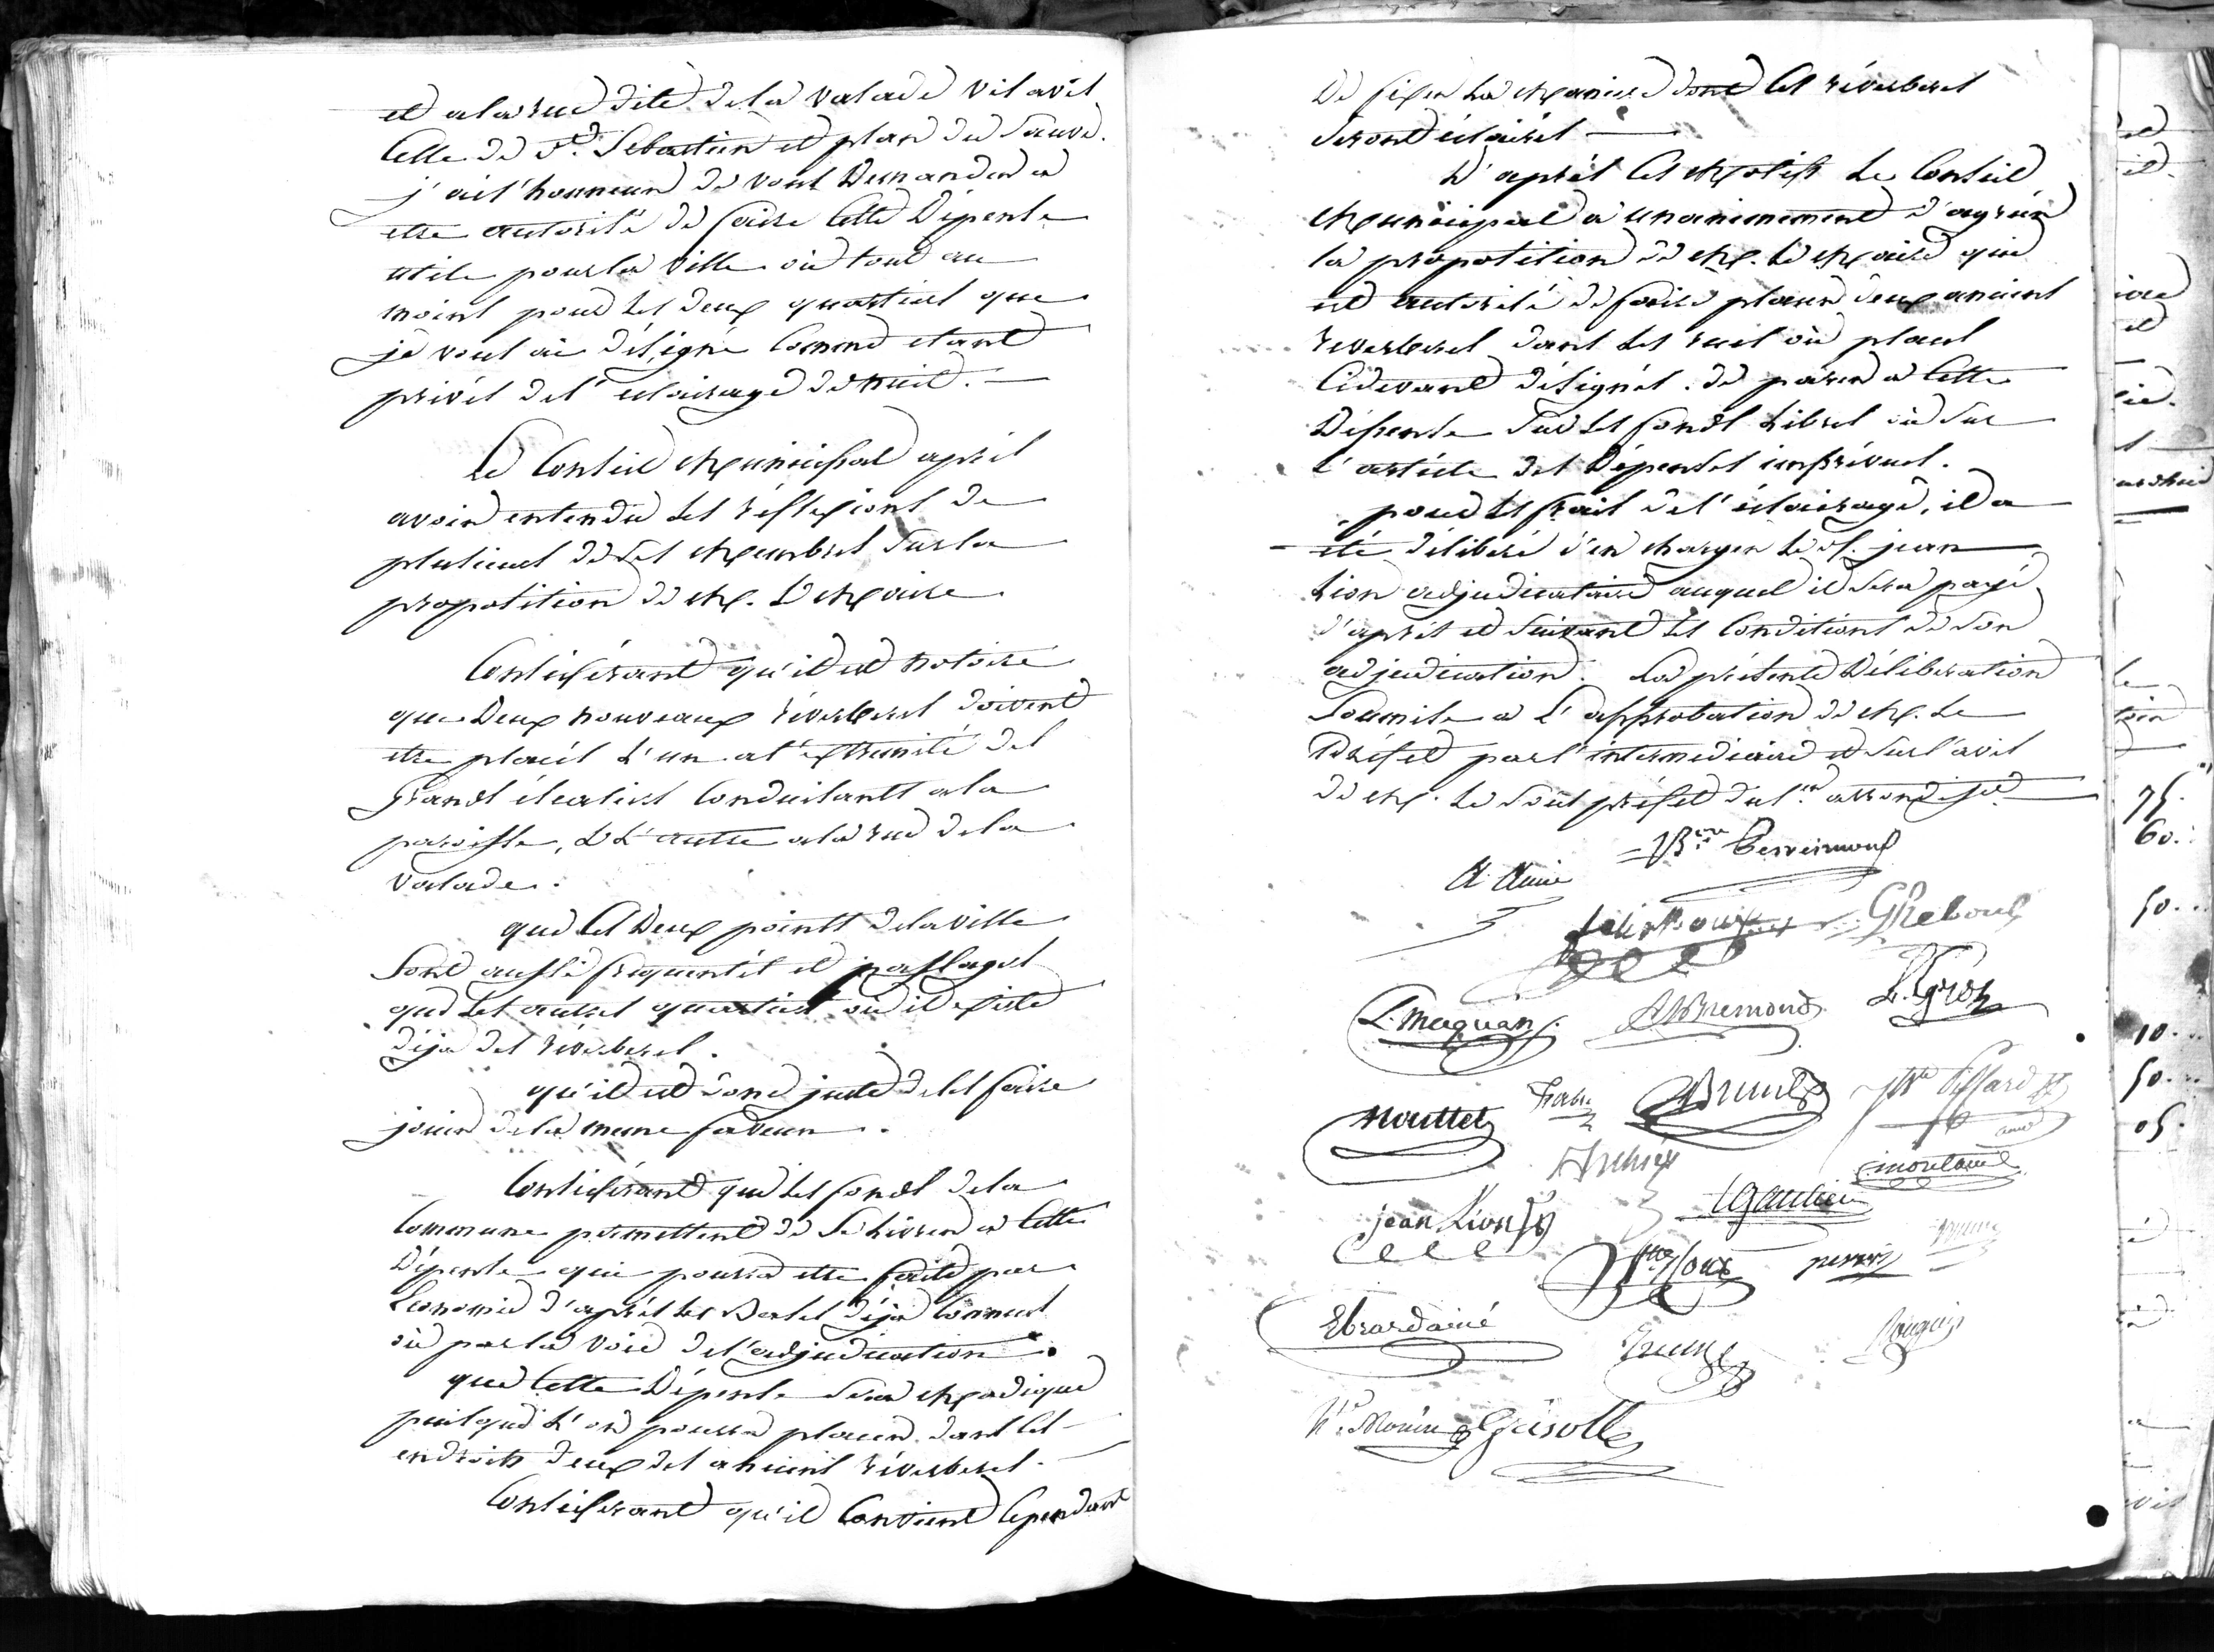 et a la rue dite de la valade vis avis
Celle de St. Sebastien et plan du Sauvé.
j'ai l'honneur de vous Demander a
etre autorisé de faire Cette Dépense
utile pour la ville où tout au
moins pour les deux quartiers que
je vous ai désigné Comme etant
privés de l'éclairage de nuit. —
Le Conseil Municipal après
avoir entendu les réflexions de
plusieurs de ses Membres sur la
proposition de M. Le Maire
Considérant qu'il est notoire
que Deux nouveaux réverberes doivent
etre placés L'un a l'extrémité des
grands éscaliers Conduisants a la
paroisse, & L'autre a la rue de la
valade.
que Ces Deux points de la ville
Sont aussi frequentés et passagés
que les autres quartiers où il existe
déja des réverberes.
qu'il est donc juste de les faire
jouir de la meme faveur.
Considérant que les fonds de la
Commune permettent de se livrer a Cette
Dépense qui pourra etre faite par
Economie d'après les Bases déja Connues
où par la voie de l'adjudication.
que Cette Dépense sera Modique
puisque L'on pourra placer dans Ces
endroits deux des anciens réverberes.
Considerant qu'il Convient Cependant
De fixer La Maniere dont Les réverberes
Seront éclairés —
D'après Ces Motifs Le Conseil
Municipal a unanimement d'agréer
la proposition de M. Le Maire qui
est autorisé de faire placer deux anciens
reverberes dans les rues où places
Cidevant désignés. de payer a Cette
Dépense sur les fonds Libres où sur
L'article des Dépenses imprévues.
pour les frais de l'éclairage, il a
eté déliberé d'en charger le Sr. jean
Lion adjudicataire auquel il sera payé
d'après et suivant les Conditions de son
adjudication. La présente Déliberation
Soumise a L'approbation de M. Le
Préfet par l'intermediaire et sur l'avis
de M. Le Sous préfet du 1er arrondisst.
A Aune
G Reboul
L. Maquan
A Bremond
L. Gros
Mouttet
Brunet
jean Lion
Gautier
Roux
Ebrard ainé
Brun
Grisolle